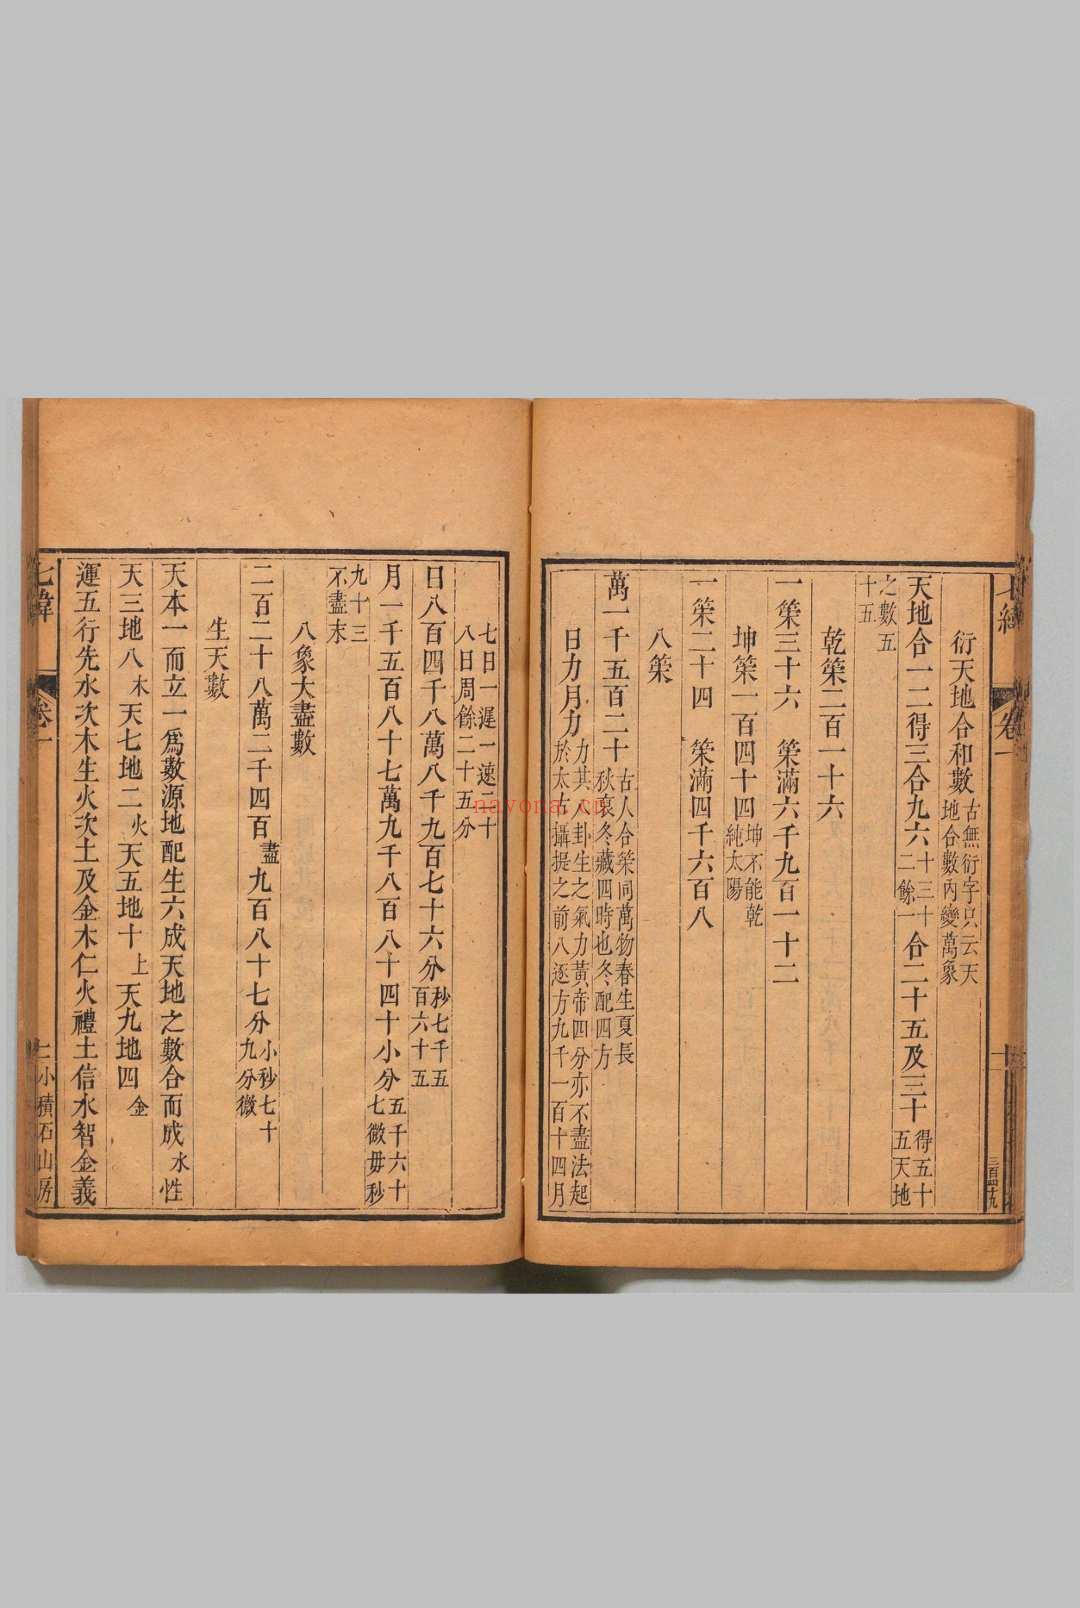 衍天地合和數古無衍字只云天
地合數內變萬象
天地合一二得三合九六十三十
二餘一合二十五及三十得五十
五天地
之數五
十五
乾筞二百一十六
一筞三十六 筞滿六千九百一十二
坤筞一百四十四坤不能乾
純太陽
一筞二十四 筞滿四千六百八
八筞
萬一千五百二十古人合筞同萬物春生夏長
秋哀冬藏四時也冬配四方
日力月力力其八卦生之氣力黃帝四分亦不盡法起
於太古攝提之前八逐方九千一百十四月
七日一遲一速二十
八日周餘二十五分
日八百四千八萬八千九百七十六分秒七千五
百六十五
月一千五百八十七萬九千八百八十四十小分五千六十
七微毋秒
九十三
不盡末
八象大盡數
二百二十八萬二千四百盡九百八十七分小秒七十
九分微
生天數
天本一而立一爲數源地配生六成天地之數合而成水性
天三地八木天七地二火天五地十上天九地四金
運五行先水次木生火次土及金木仁火禮土信水智金義
七緯
卷一
十
三百四十九
七緯
卷一
小積石山房
nayona.cn